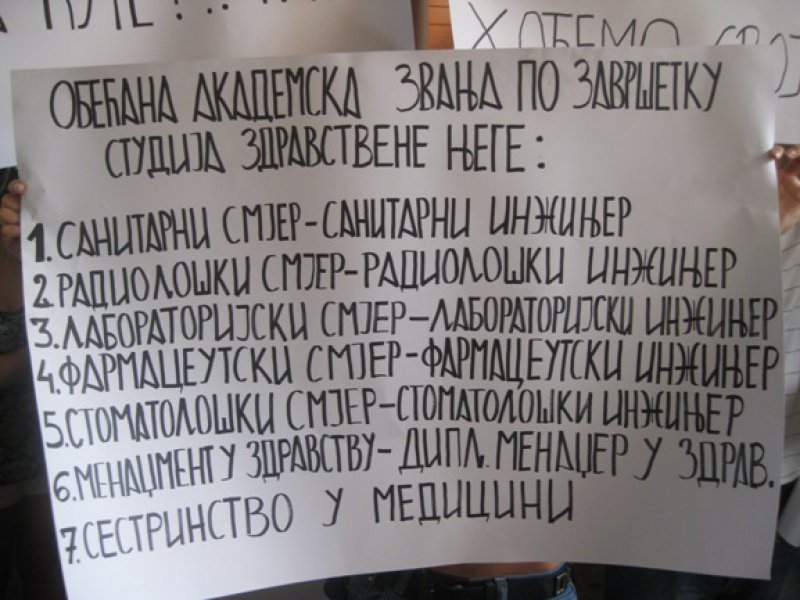 ХОЋЕМО СВОЈ
ОБЕЋАНА АКАДЕМСКА ЗВАЊА ПО ЗАВРШЕТКУ
СТУДИЈА ЗДРАВСТВЕНЕ ЊЕГЕ:
1. САНИТАРНИ СМЈЕР-САНИТАРНИ ИНЖИЊЕР
2. РАДИОЛОШКИ СМЈЕР-РАДИОЛОШКИ ИНЖИЊЕР
3. ЛАБОРАТОРИЈСКИ СМЈЕР-ЛАБОРАТОРИЈСКИ ИНЖИЊЕР
4. ФАРМАЦЕУТСКИ СМЈЕР-ФАРМАЦЕУТСКИ ИНЖИЊЕР
5. СТОМАТОЛОШКИ СМЈЕР-СТОМАТОЛОШКИ ИНЖИЊЕР
6. МЕНАЏМЕНТ У ЗДРАВСТВУ- ДИПЛ. МЕНАЏЕР У ЗДРАВ.
7. СЕСТРИНСТВО У МЕДИЦИНИ